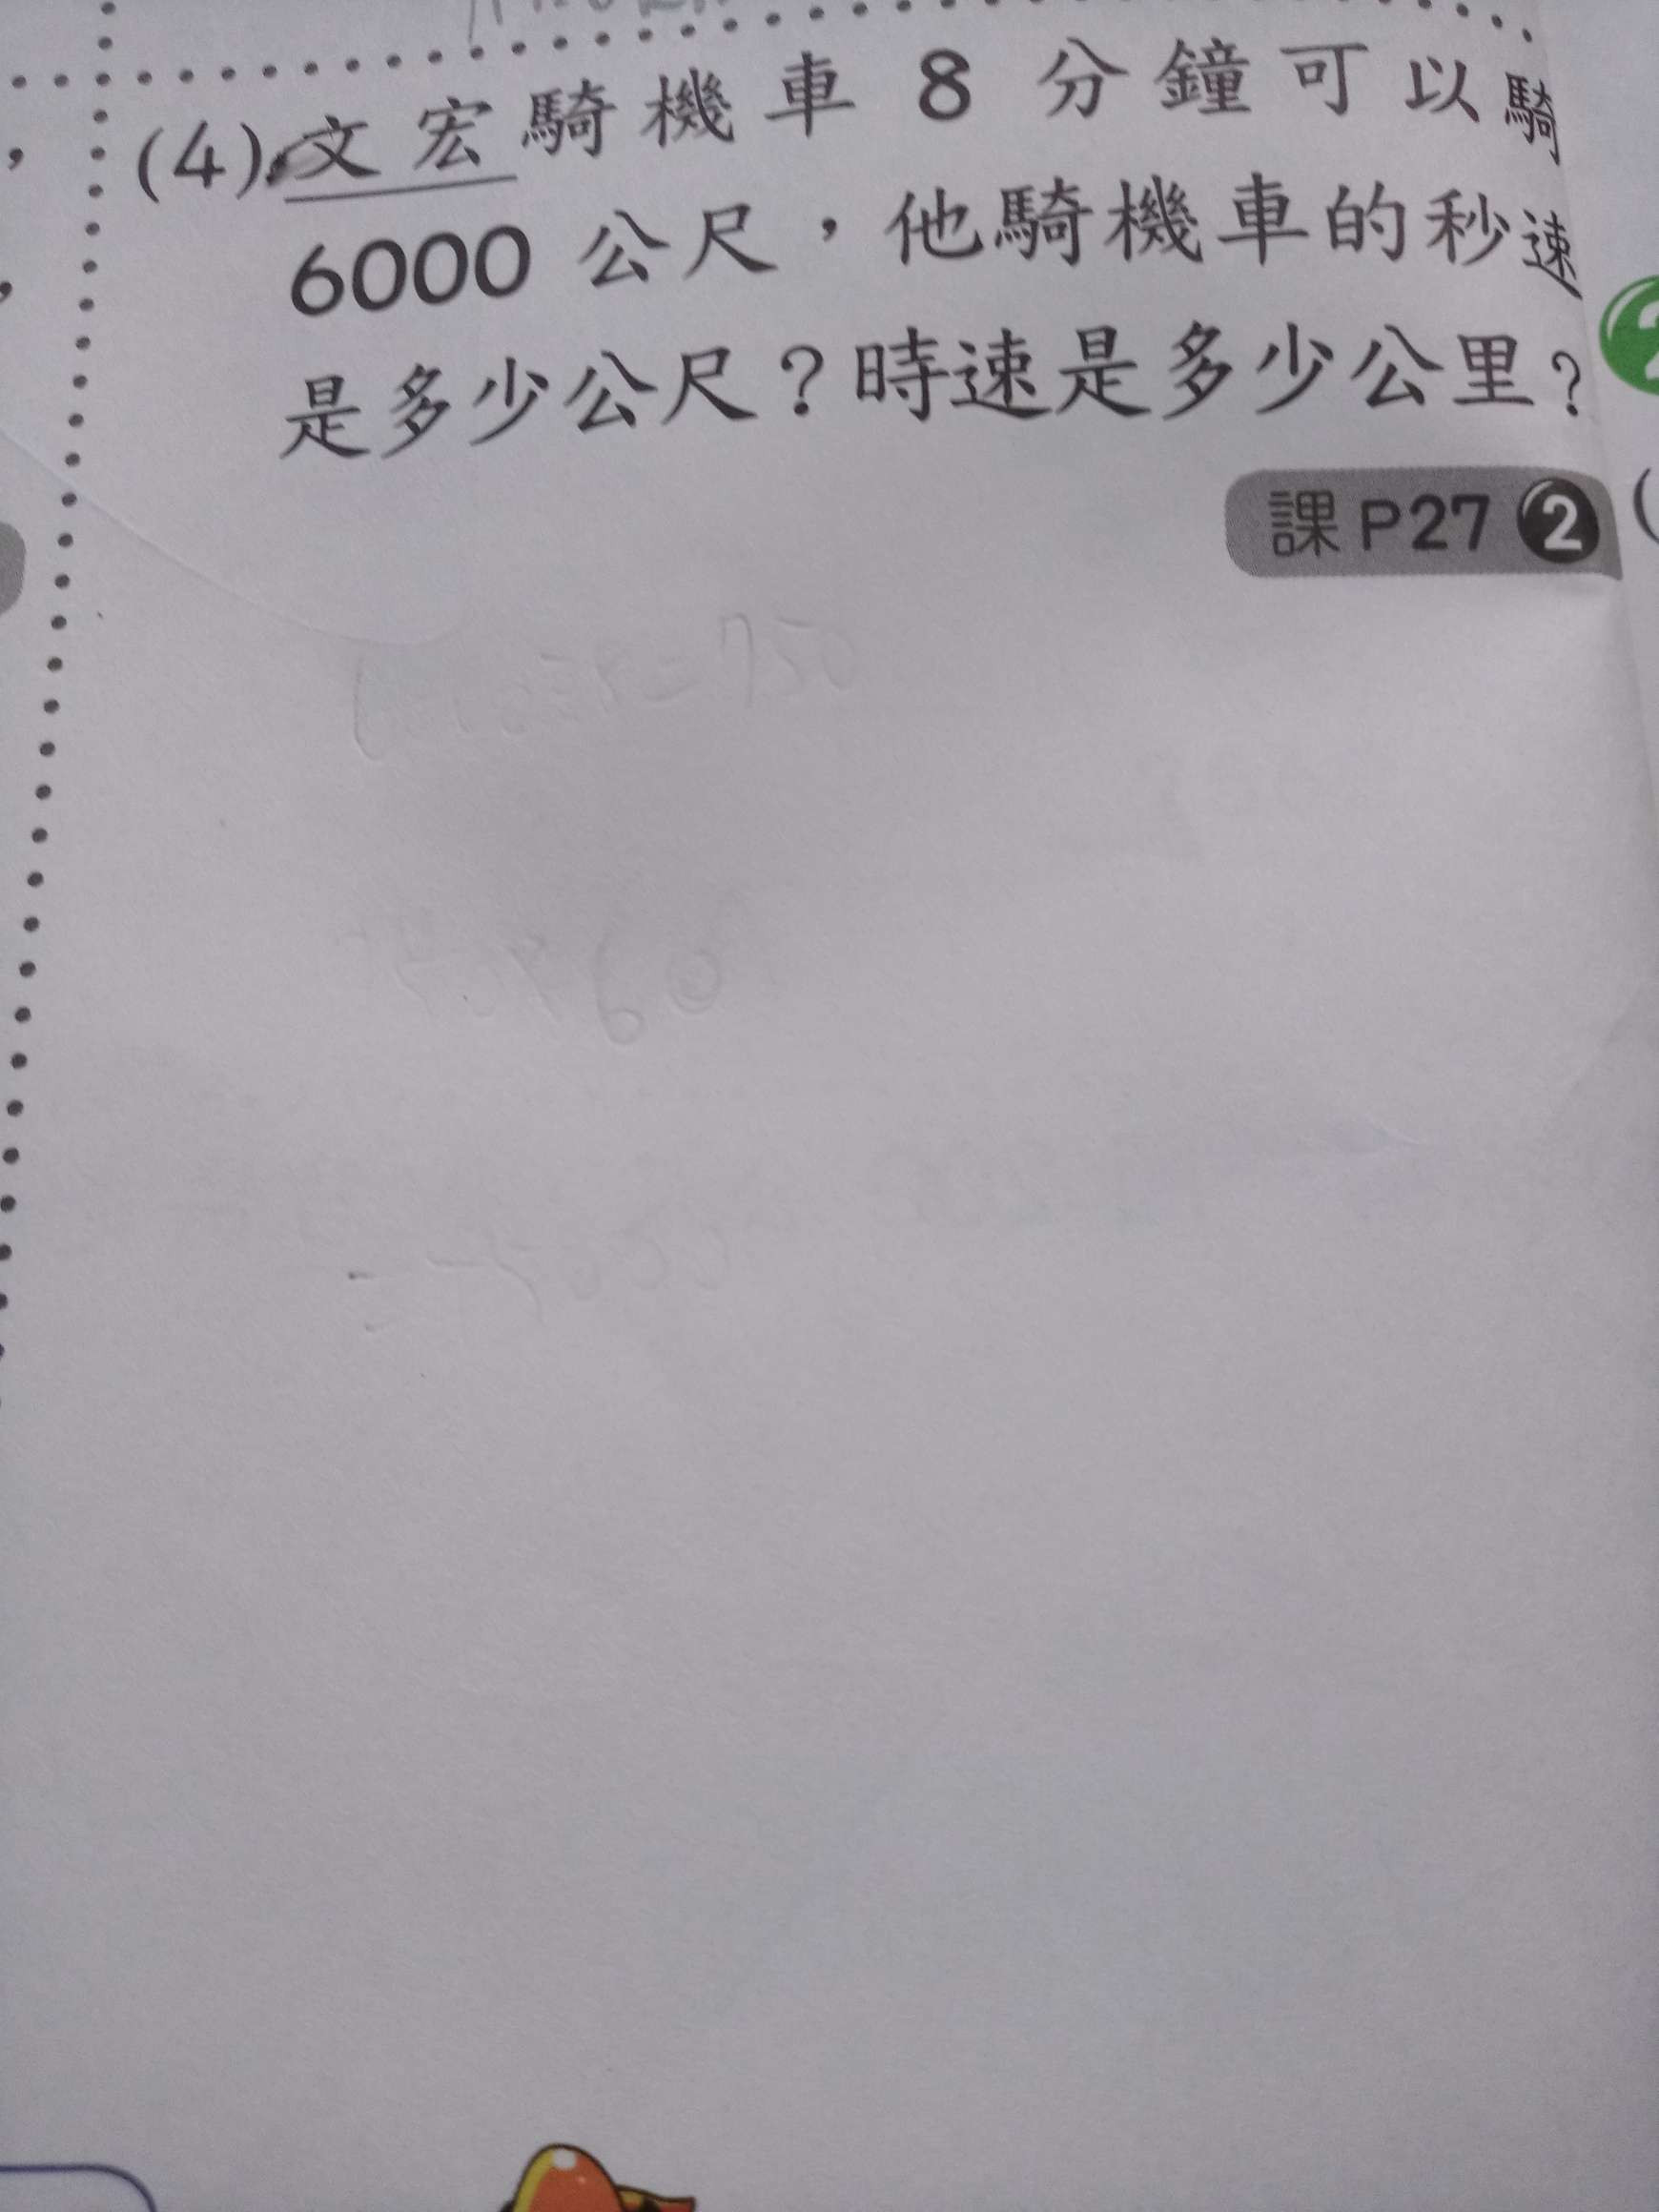 (4) 文宏騎機車8分鐘可以騎
6000公尺，他騎機車的秒速
是多少公尺？時速是多少公里？
課P27 2